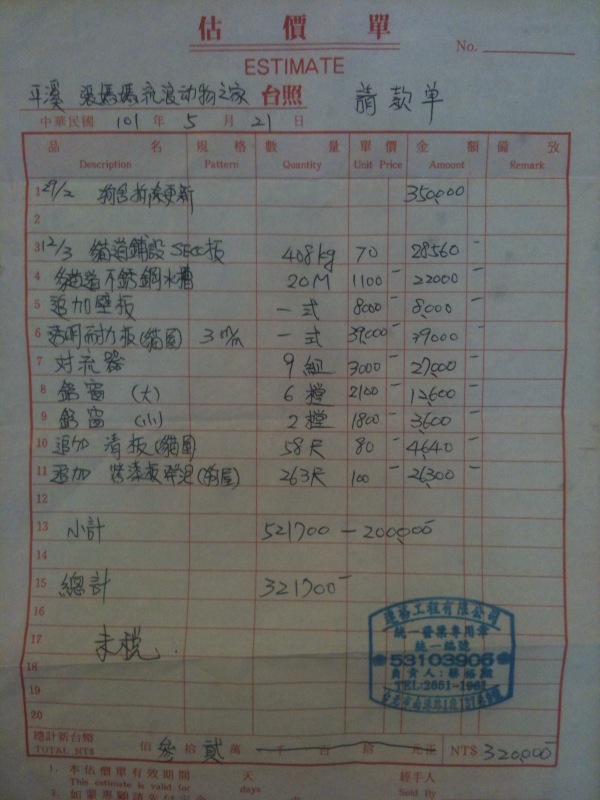 估價單
ESTIMATE
No.
平溪 張媽媽流浪动物之家 台照 請款单
中華民國 101 年 5 月 21 日
品名 規格 數量 單價 金額 備攷
Description Pattern Quantity Unit Price Amount Remark
1 29/2 狗舍拆除更新 350,000
2
3 12/3 貓道鋪設 SECC板 408kg 70 28560
4 貓道不銹鋼水槽 20M 1100 22000
5 追加壁板 一式 8000 8,000
6 透明耐力板(貓園) 3 m/m 一式 39,000 39000
7 对流器 9組 3000 27,000
8 鋁窗 (大) 6樘 2100 12,600
9 鋁窗 (小) 2樘 1800 3,600
10 追加 清板(貓園) 58尺 80 4640
11 追加 263尺 100 26,300
12
13 小計 521700 - 200,000
14
15 總計 321700
16
17 未稅
18
19
20
工程有限公司
統一發票專用章
統一編號
53103906
負責人:蔡
TEL:2651-1961
台北市南港
總計新台幣
TOTAL NT$ 佰 參 拾 貳 萬 千 百 拾 元正 NT$ 320,000
1. 本估價單有效期間 天 經手人
This estimate is valid for days Sold By
2. 如蒙惠顧請先付定金